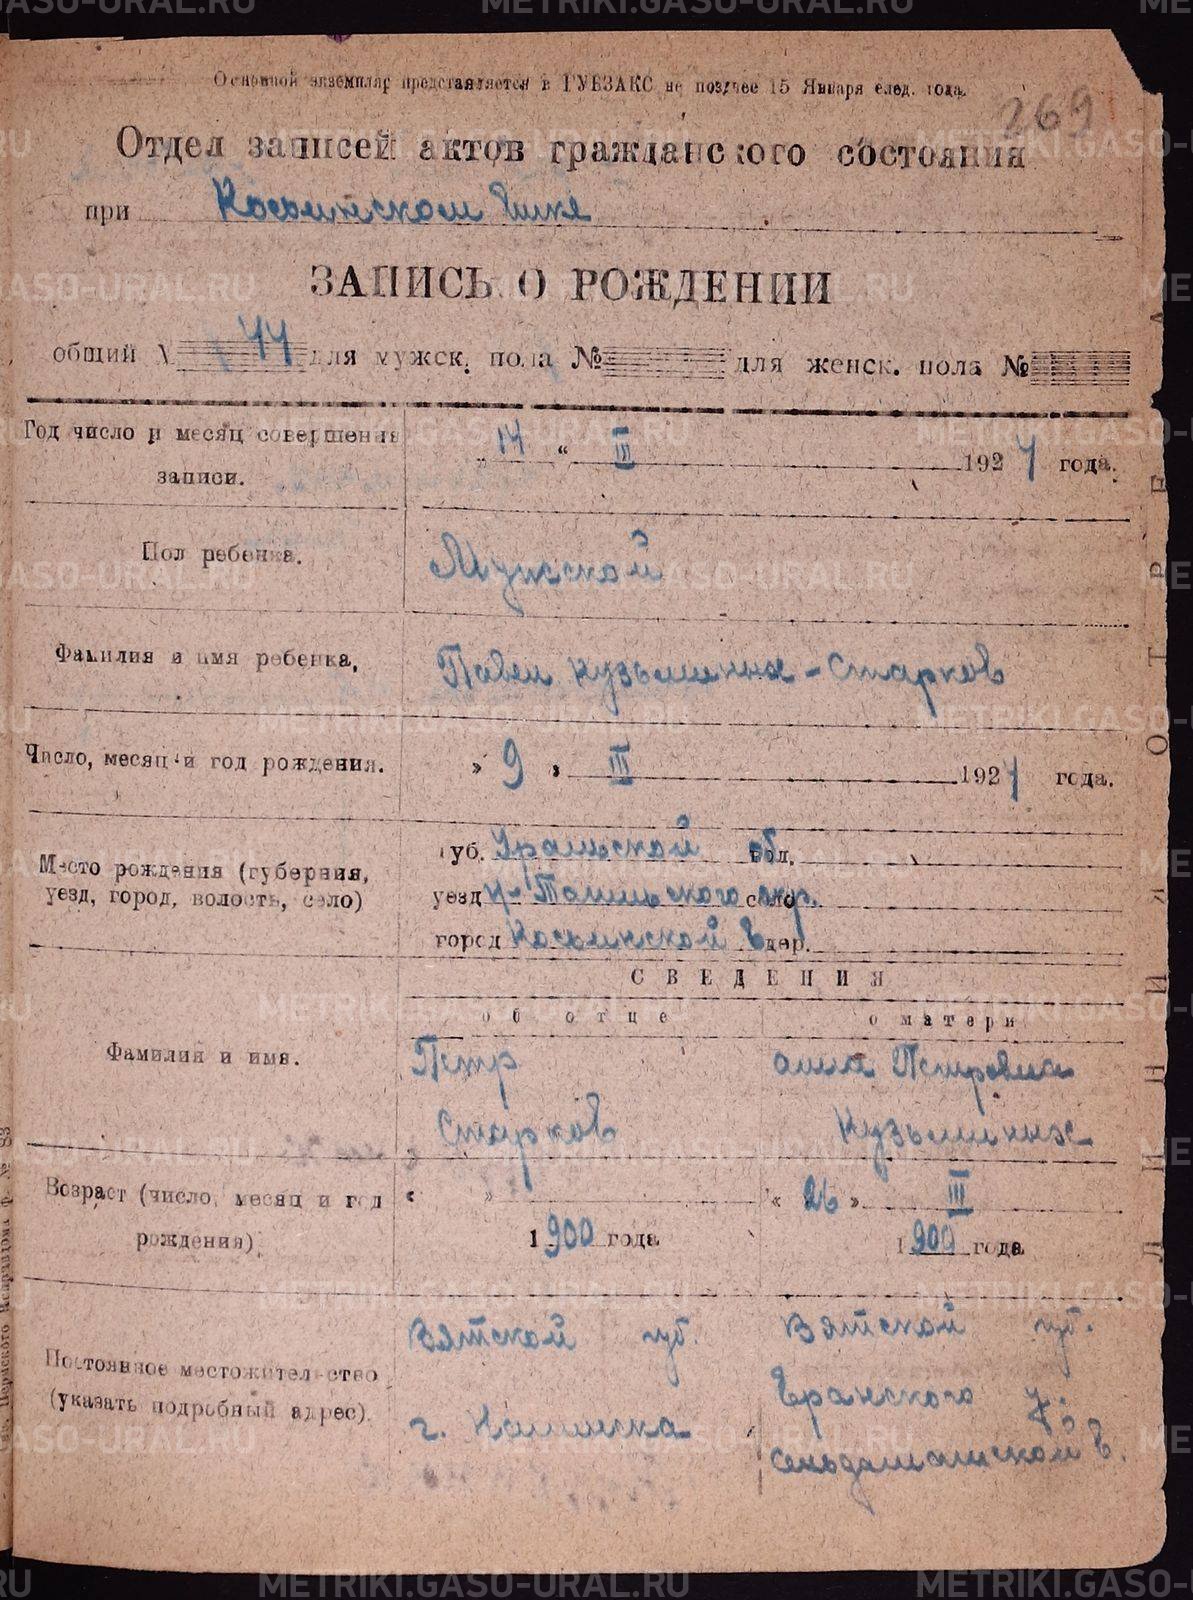 METRIKI.GASO-URAL.RU
Основной экземпляр представляется в ГУБЗАКС не позднее 15 Января след. года.
269
Отдел записей актов гражданского состояния
при
ЗАПИСЬ О РОЖДЕНИИ
общий № 44 для мужск. пола № для женск. пола №
Год число и месяц совершения записи.
„ 14 “ III 1924 года.
Пол ребенка.
Мужской
Фамилия и имя ребенка,
Павел Кузьминых-Старков
Число, месяц и год рождения.
» 9 » III 1924 года.
Место рождения (губерния,
уезд, город, волость, село)
губ. Уральской обл.
уезд Н-Тагильского окр.
город Косьинской в дер.
СВЕДЕНИЯ
об отце
о матери
Фамилия и имя.
Петр
Старков
анна Петровна
Кузьминых
Возраст (число, месяц и год
рождения)
« » 1900 года
« 26 » III 1900 года
Постоянное местожительство
(указать подробный адрес).
Вятской губ.
г.
Вятской губ.
Яранского у.
в.
ЛИНИЯ ОТРЕЗА
№ 83